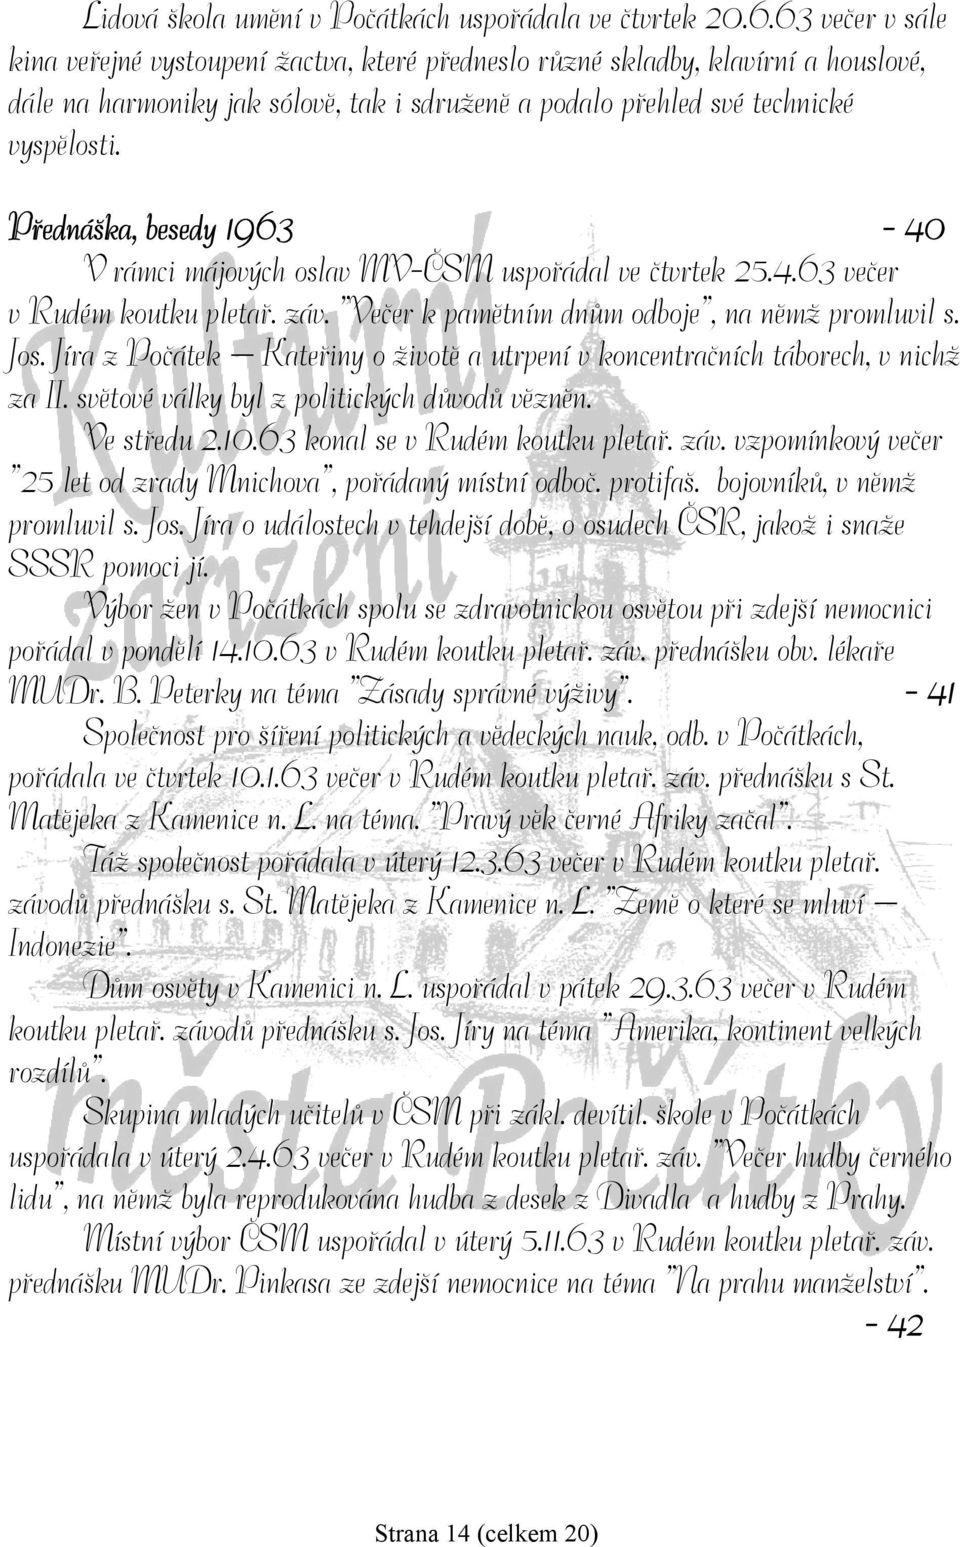 Lidová škola umění v Počátkách uspořádala ve čtvrtek 20.6.63 večer v sále
kina veřejné vystoupení žactva, které předneslo různé skladby, klavírní a houslové,
dále na harmoniky jak sólově, tak i sdruženě a podalo přehled své technické
vyspělosti.
Přednáška, besedy 1963 - 40
V rámci májových oslav MV-ČSM uspořádal ve čtvrtek 25.4.63 večer
v Rudém koutku pletař. záv. "Večer k pamětním dnům odboje", na němž promluvil s.
Jos. Jíra z Počátek – Kateřiny o životě a utrpení v koncentračních táborech, v nichž
za II. světové války byl z politických důvodů vězněn.
Ve středu 2.10.63 konal se v Rudém koutku pletař. záv. vzpomínkový večer
"25 let od zrady Mnichova", pořádaný místní odboč. protifaš. bojovníků, v němž
promluvil s. Jos. Jíra o událostech v tehdejší době, o osudech ČSR, jakož i snaže
SSSR pomoci jí.
Výbor žen v Počátkách spolu se zdravotnickou osvětou při zdejší nemocnici
pořádal v pondělí 14.10.63 v Rudém koutku pletař. záv. přednášku obv. lékaře
MUDr. B. Peterky na téma "Zásady správné výživy". - 41
Společnost pro šíření politických a vědeckých nauk, odb. v Počátkách,
pořádala ve čtvrtek 10.1.63 večer v Rudém koutku pletař. záv. přednášku s St.
Matějeka z Kamenice n. L. na téma. "Pravý věk černé Afriky začal".
Táž společnost pořádala v úterý 12.3.63 večer v Rudém koutku pletař.
závodů přednášku s. St. Matějeka z Kamenice n. L. "Země o které se mluví –
Indonezie".
Dům osvěty v Kamenici n. L. uspořádal v pátek 29.3.63 večer v Rudém
koutku pletař. závodů přednášku s. Jos. Jíry na téma "Amerika, kontinent velkých
rozdílů".
Skupina mladých učitelů v ČSM při zákl. devítil. škole v Počátkách
uspořádala v úterý 2.4.63 večer v Rudém koutku pletař. záv. "Večer hudby černého
lidu", na němž byla reprodukována hudba z desek z Divadla a hudby z Prahy.
Místní výbor ČSM uspořádal v úterý 5.11.63 v Rudém koutku pletař. záv.
přednášku MUDr. Pinkasa ze zdejší nemocnice na téma "Na prahu manželství".
- 42
Kulturní
zařízení
města Počátky
Strana 14 (celkem 20)